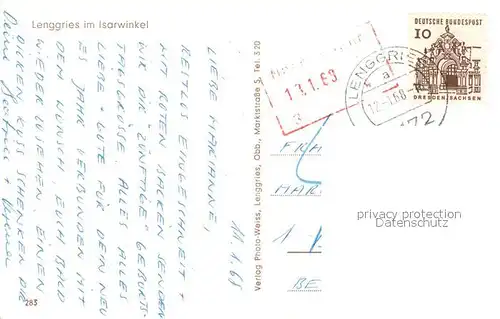 Lenggries im Isarwinkel
11.1.68
LIEBE MARIANNE,
RESTLOS EINGESCHNEIT +
MIT ROTEN BACKEN SENDEN
WIR DIR "ZÜNFTIGE" GEBURTS-
TAGSGRÜSSE. ALLES ALLES
LIEBE + GUTE FÜR DEIN NEU
ES JAHR VERBUNDEN MIT
DEM WUNSCH, EUCH BALD
WIEDER ZU SEHEN. EINEN
DICKEN KUSS SCHENKEN DIR
Deine
283
Verlag Photo-Weiss, Lenggries, Obb., Marktstraße 5, Tel. 320
13.1.68
3
LENGGRIES
a
12.-1.68
172
DEUTSCHE BUNDESPOST
10
DRESDEN/SACHSEN
FRA
MAR
1
BE
privacy protection
Datenschutz